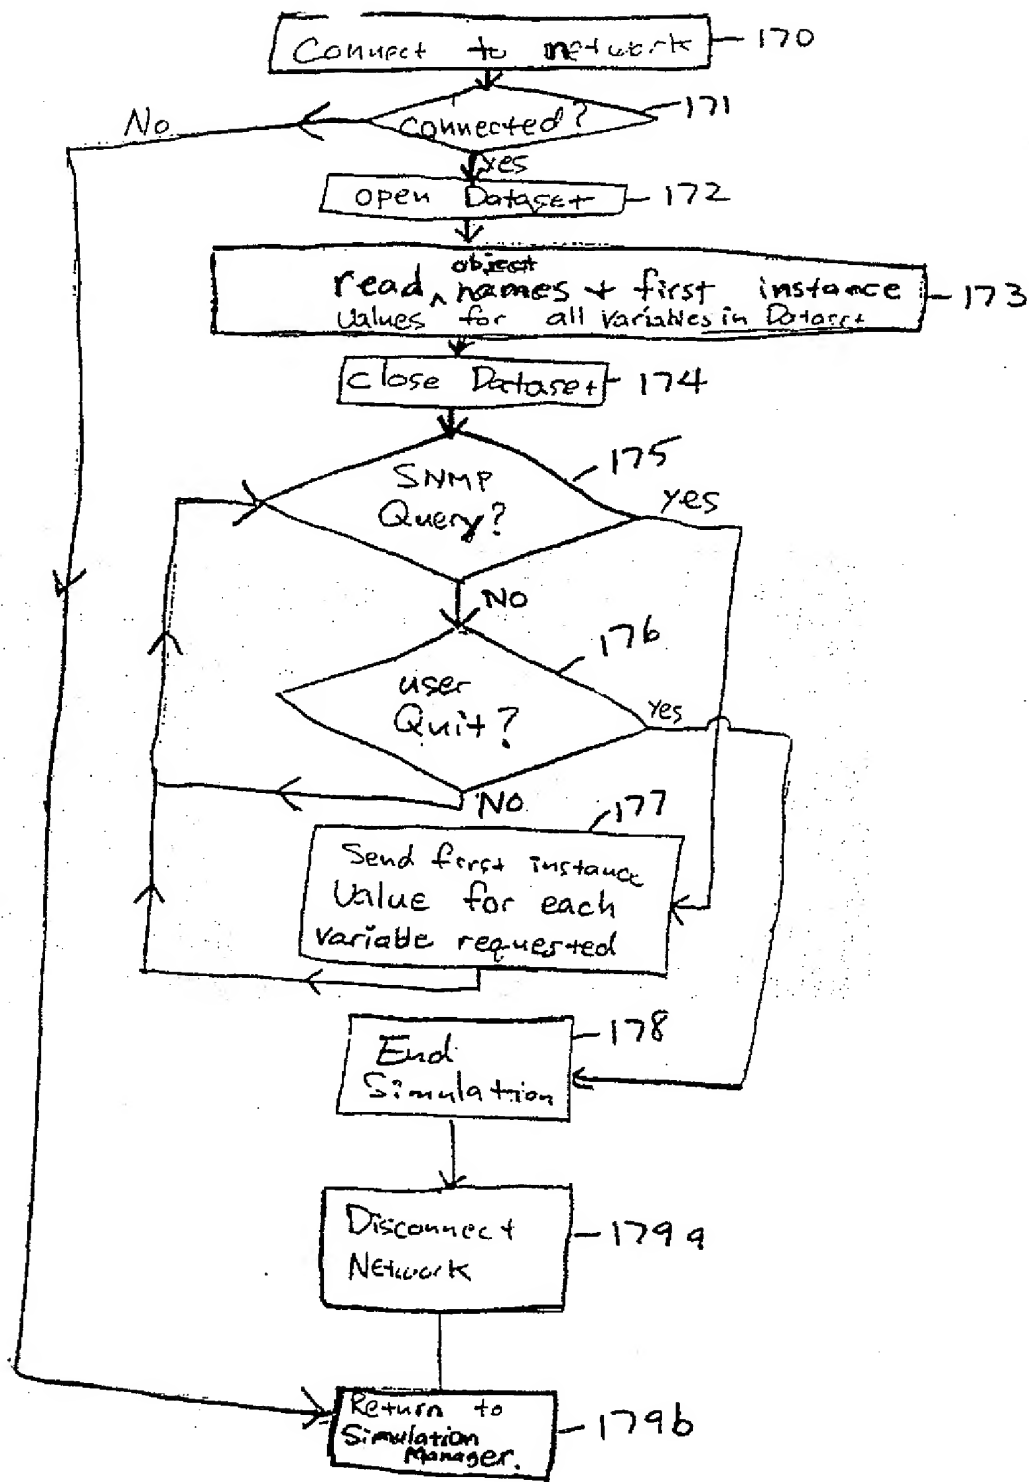 Connect to network
170
171
No
connected?
yes
open Dataset
172
object
read ^ names + first instance
173
Values for all variables in Dataset
close Dataset
174
175
SNMP
Query?
yes
NO
176
user
Quit?
yes
NO
177
Send first instance
Value for each
variable requested
178
End
Simulation
Disconnect
Network
179a
Return to
Simulation
Manager.
179b